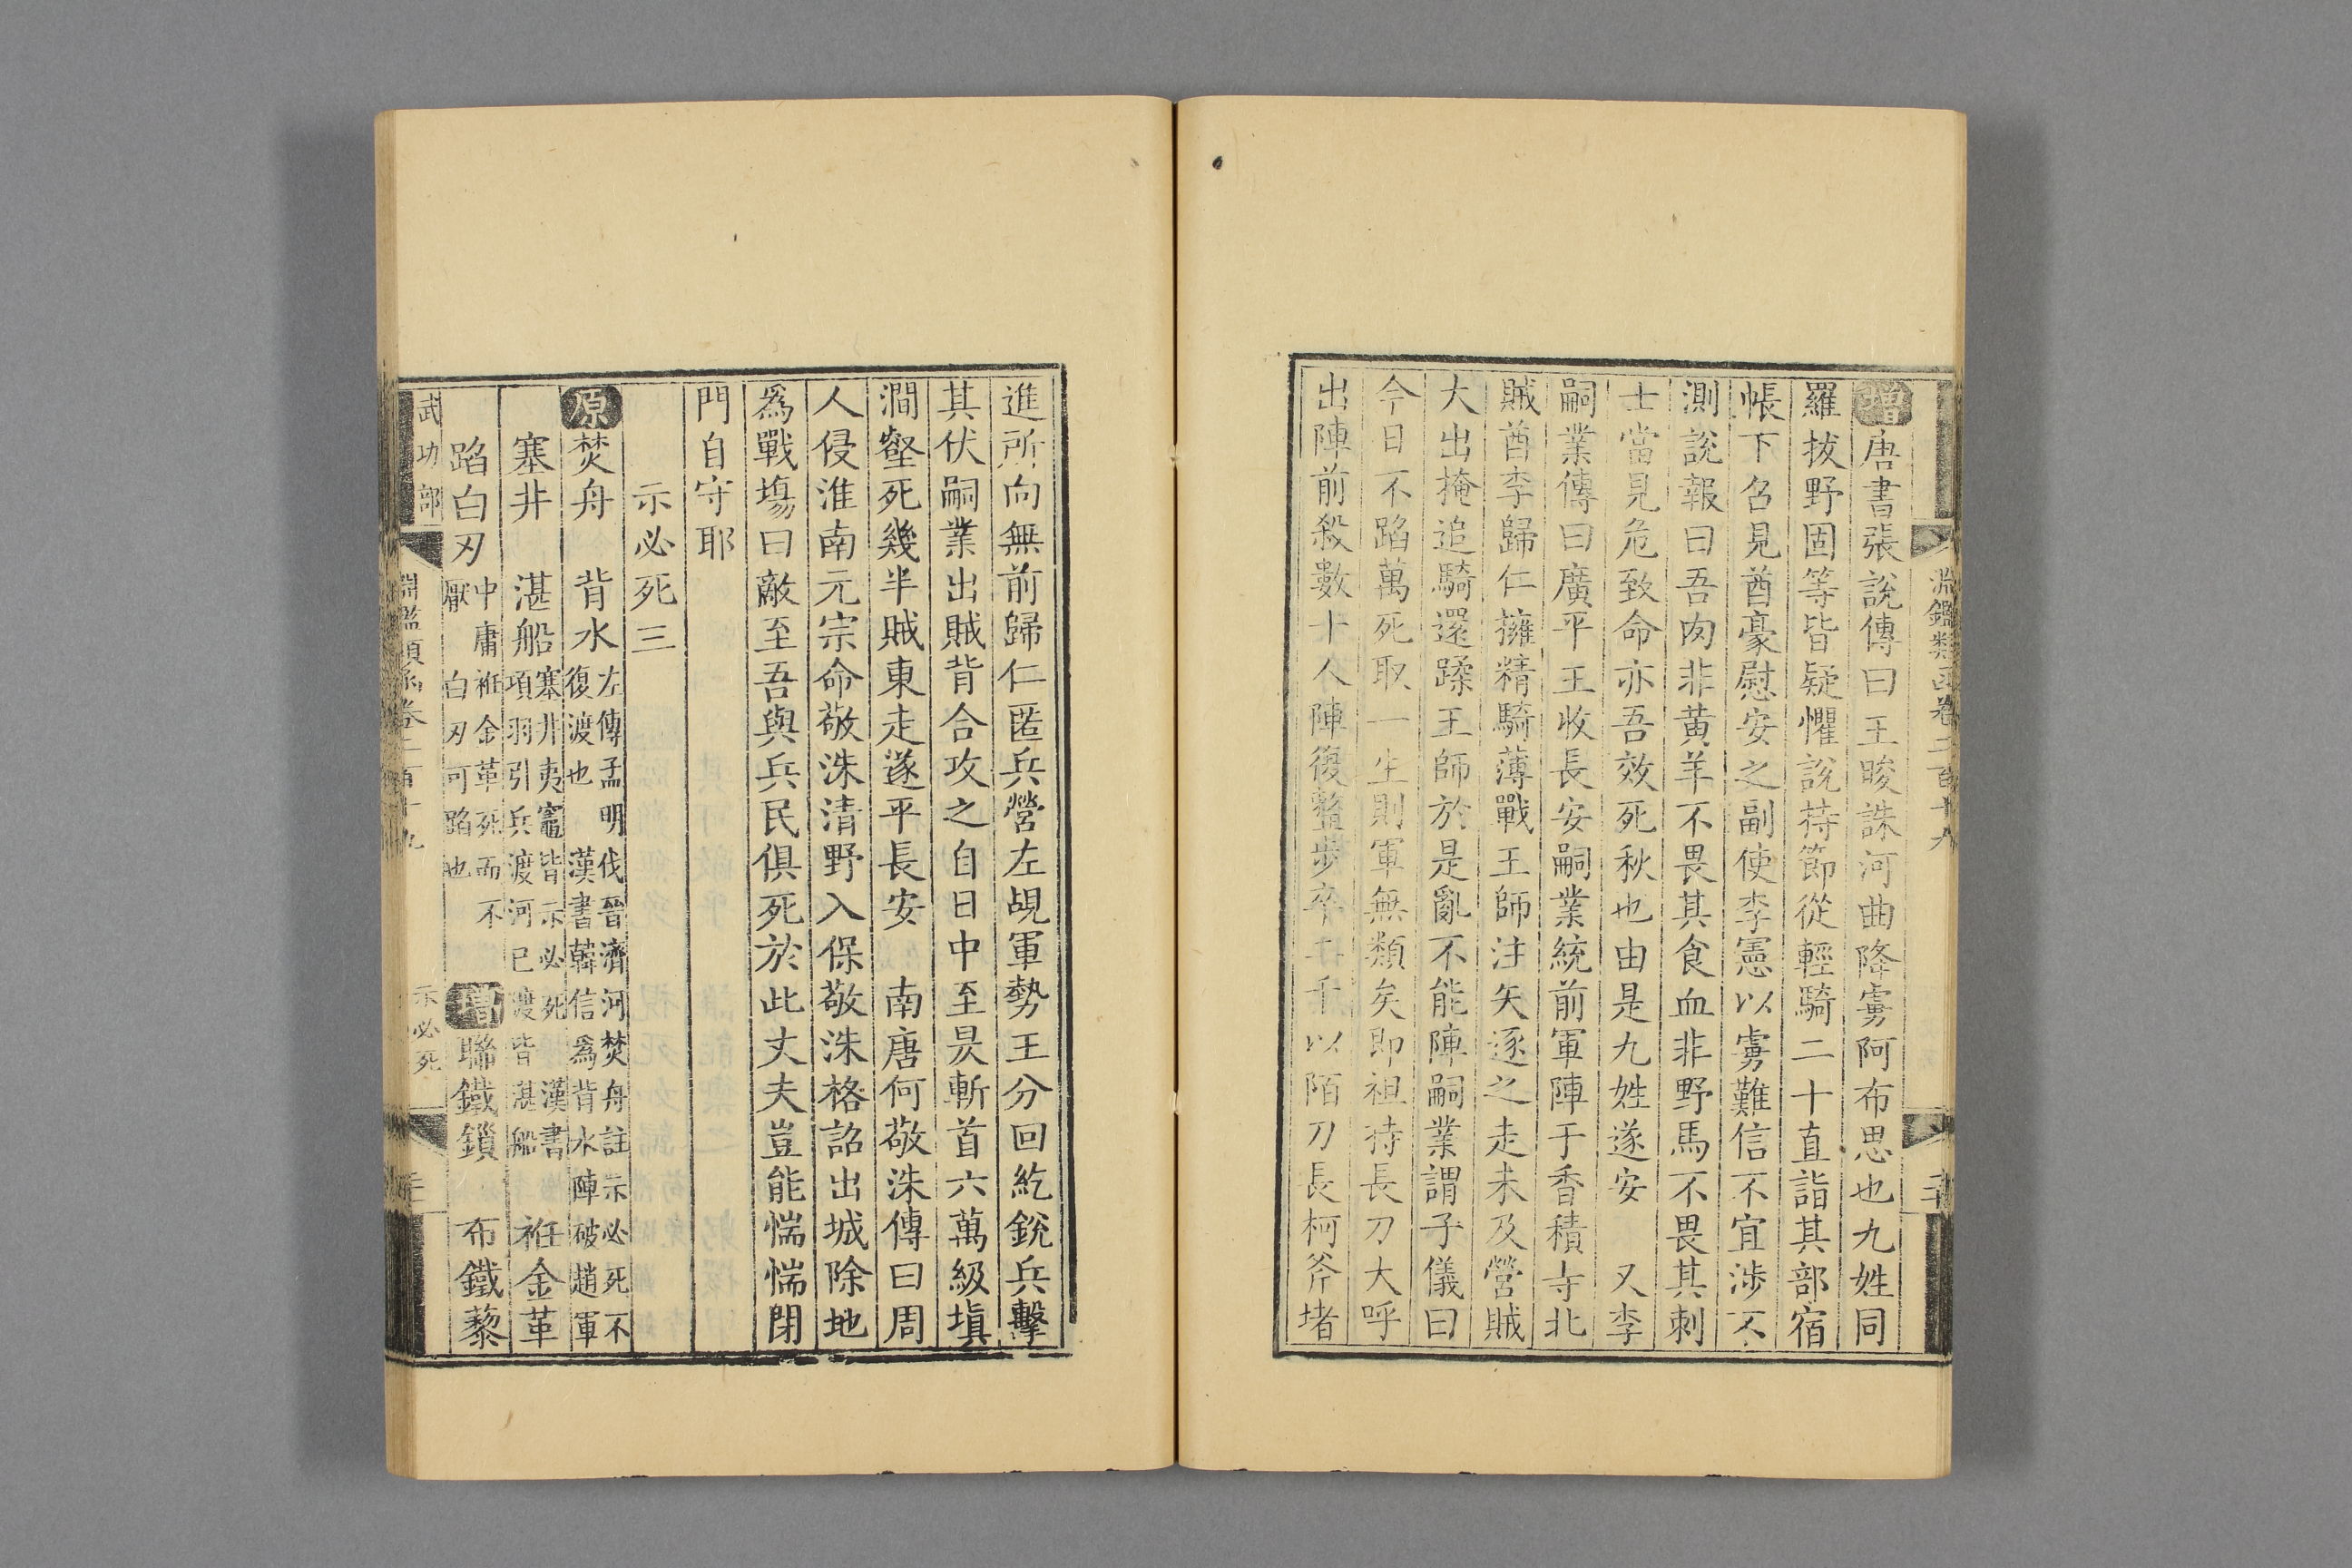 淵鑑類函卷二百十九
增唐書張說傳曰王晙誅河曲降虜阿布思也九姓同
羅拔野固等皆疑懼說持節從輕騎二十直詣其部宿
帳下召見酋豪慰安之副使李憲以虜難信不宜涉不
測說報曰吾肉非黃羊不畏其食血非野馬不畏其刺
士當見危致命亦吾效死秋也由是九姓遂安　又李
嗣業傳曰廣平王收長安嗣業統前軍陣于香積寺北
賊酋李歸仁擁精騎薄戰王師注矢逐之走未及營賊
大出掩追騎還蹂王師於是亂不能陣嗣業謂子儀曰
今日不蹈萬死取一生則軍無類矣即袒持長刀大呼
出陣前殺數十人陣復整步卒二千以陌刀長柯斧堵
進所向無前歸仁匿兵營左覘軍勢王分回紇銳兵擊
其伏嗣業出賊背合攻之自日中至昃斬首六萬級塡
澗壑死幾半賊東走遂平長安　南唐何敬洙傳曰周
人侵淮南元宗命敬洙清野入保敬洙格詔出城除地
爲戰塲曰敵至吾與兵民俱死於此丈夫豈能惴惴閉
門自守耶
示必死三
原焚舟　背水左傳孟明伐晉濟河焚舟註示必死不復渡也　漢書韓信爲背水陣破趙軍
塞井　湛船塞井夷竈皆示必死　漢書項羽引兵渡河已渡皆湛船　衽金革
蹈白刃中庸衽金革死而不厭　白刃可蹈也　增聯鐵鎖　布鐵藜
武功部
淵鑑類函卷二百十九
示必死